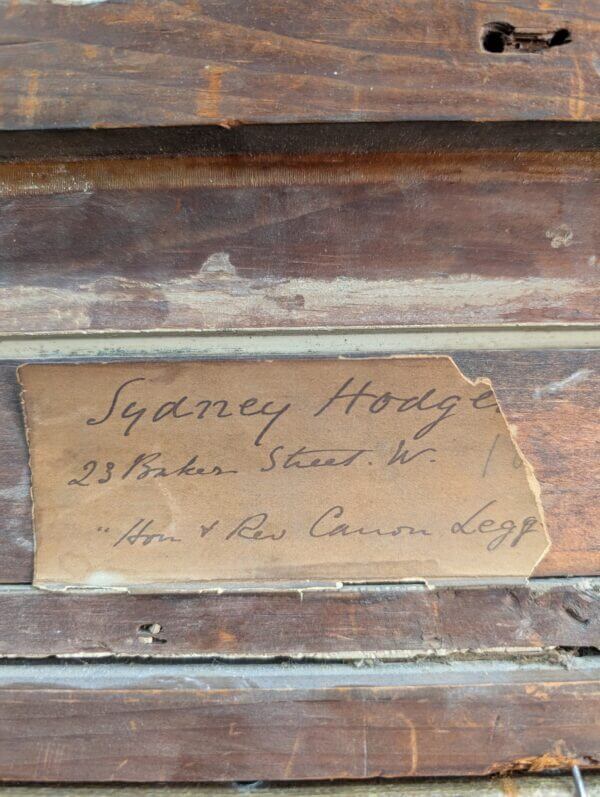 Sydney Hodge
23 Baker Street. W.
"Hon & Rev Canon Legg